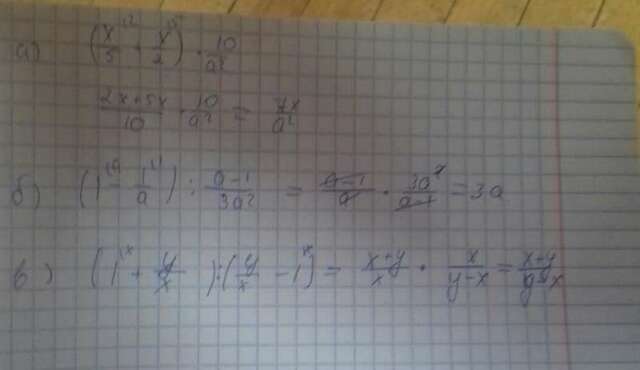 а) (x/5^|2 + x/2^|5) · 10/a²
2x+5x/10 · 10/a² = 7x/a²
б) (1^|a - 1/a^|1) : a-1/3a² = a-1/a · 3a²/a-1 = 3a
в) (1^|x + y/x) : (y/x - 1^|x) = x+y/x · x/y-x = x+y/y-x